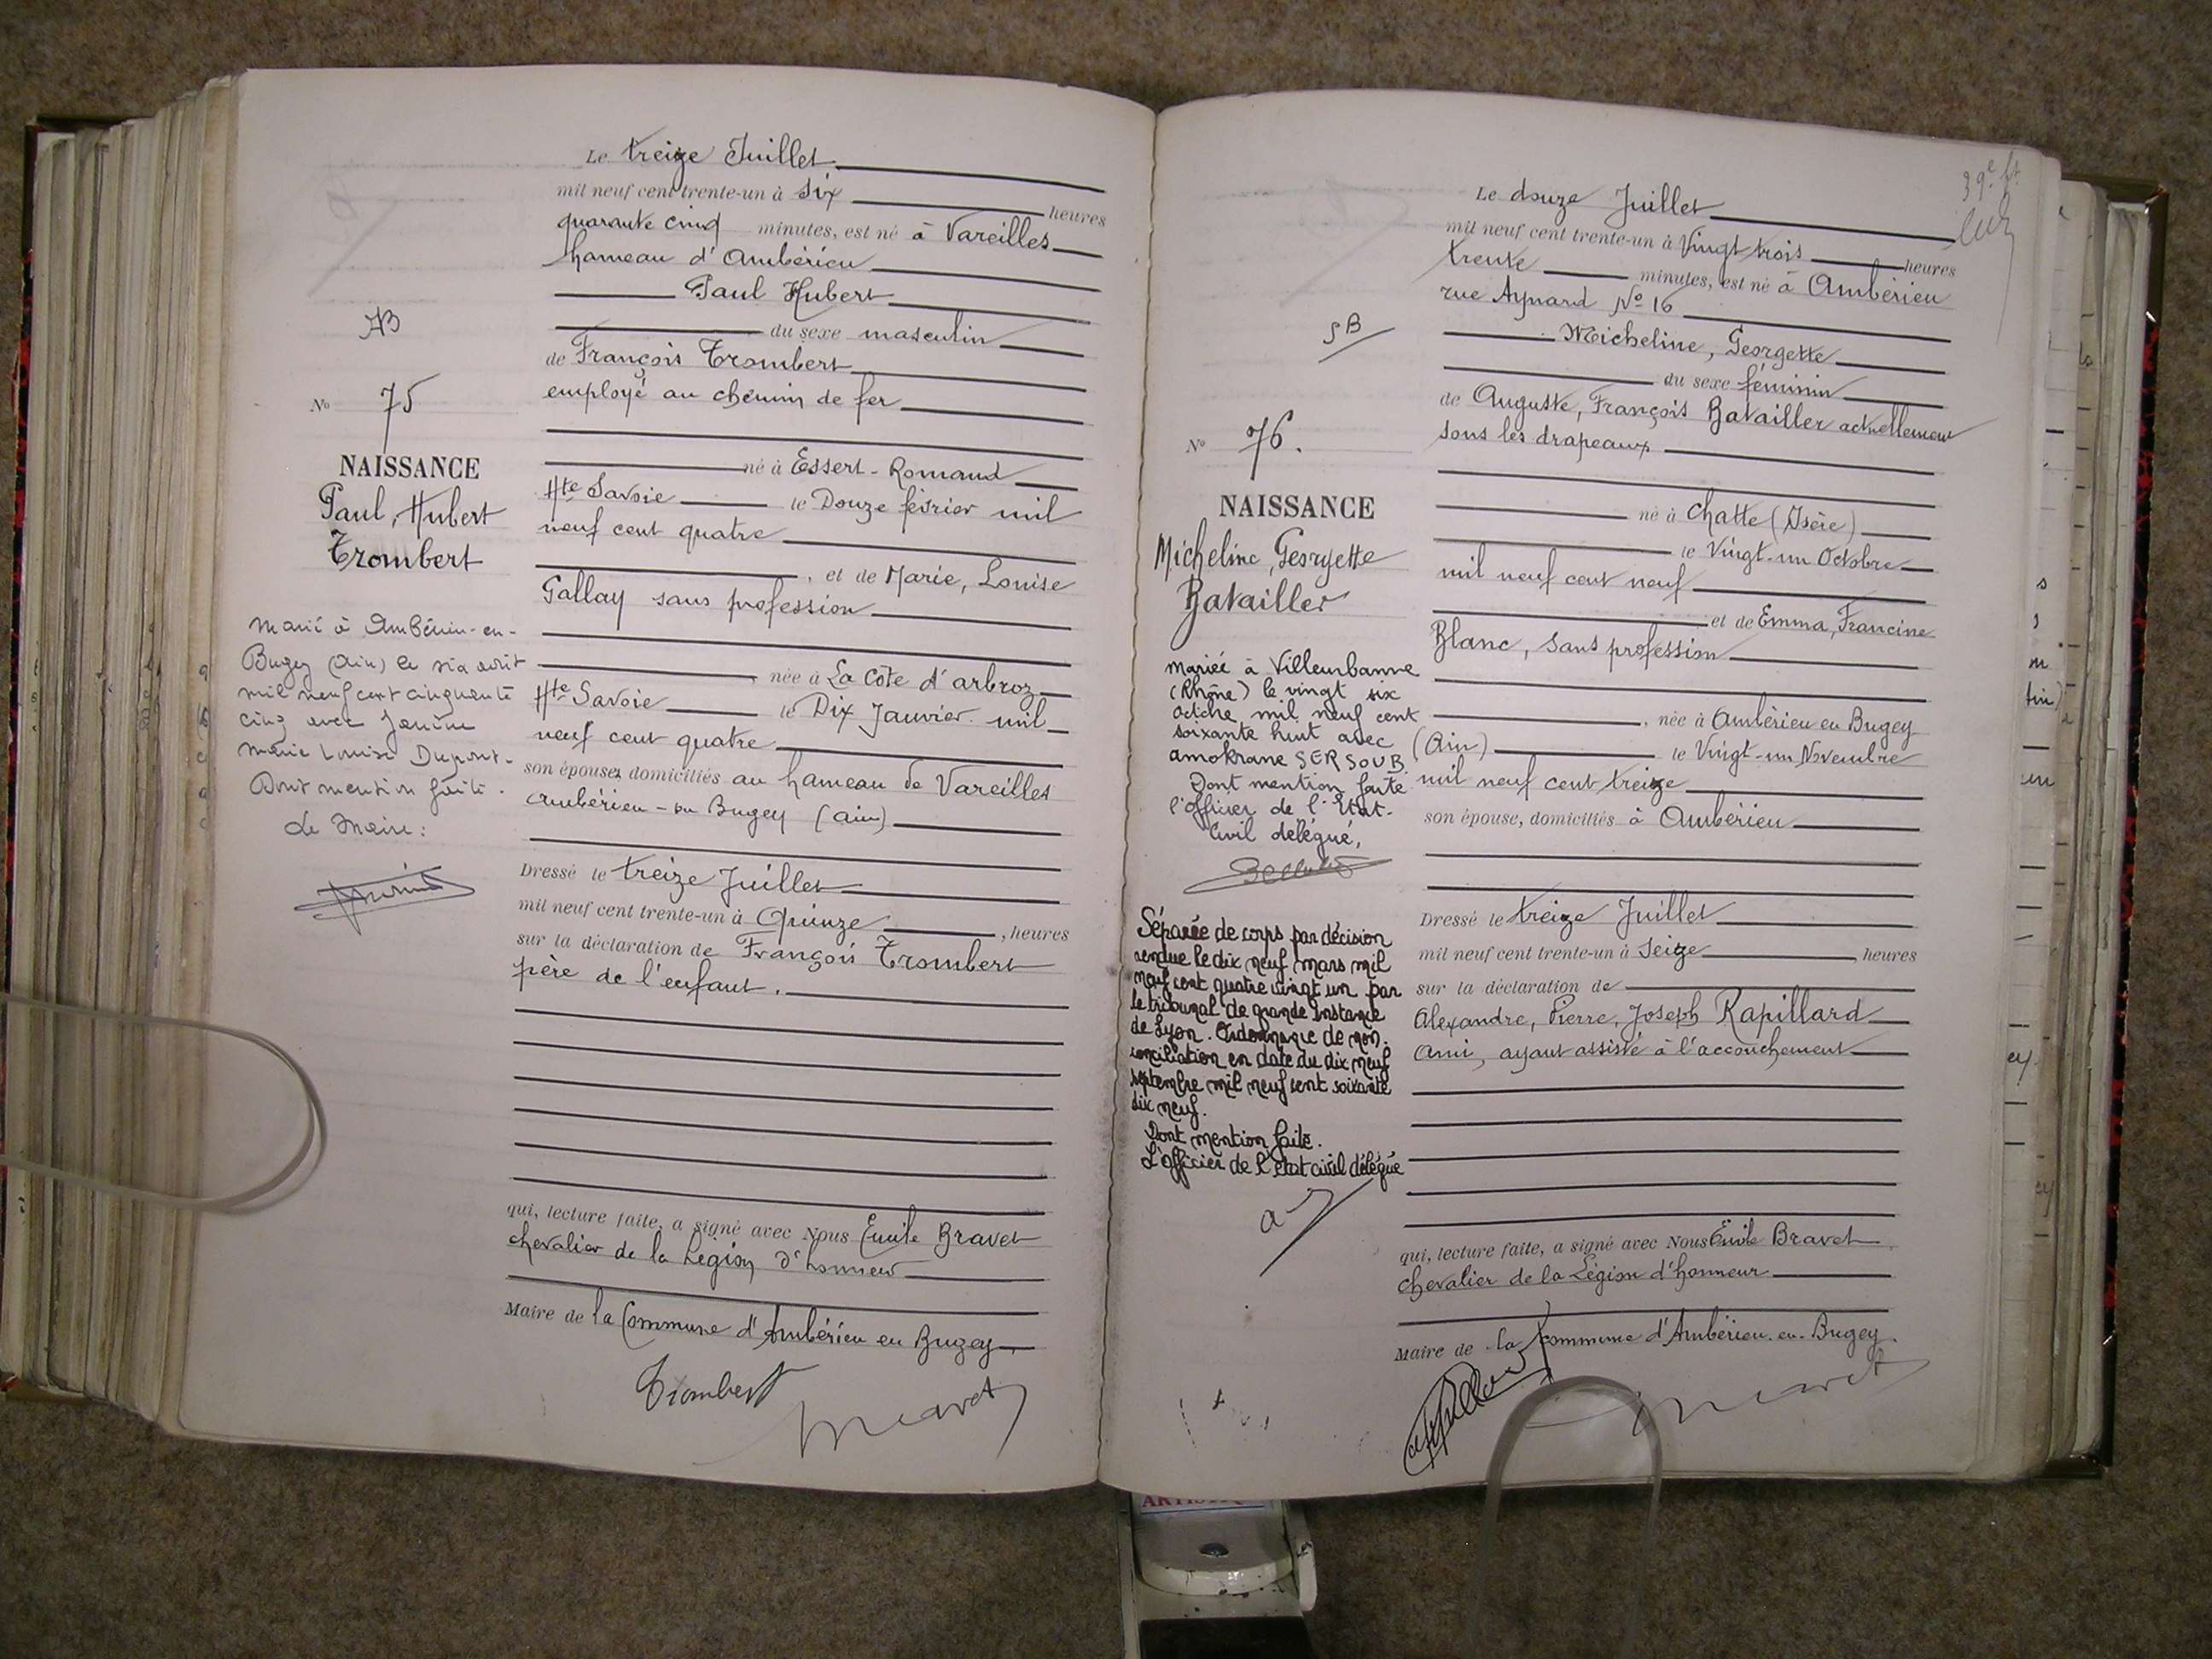 Le treize Juillet
mil neuf cent trente-un à six heures
quarante cinq minutes, est né à Vareilles
hameau d'Ambérieu
Paul Hubert
du sexe masculin
de François Trombert
employé au chemin de fer
né à Essert-Romand
Hte Savoie le Douze février mil
neuf cent quatre
, et de Marie, Louise
Gallay sans profession
, née à La Côte d'arbroz
Hte Savoie le Dix Janvier mil
neuf cent quatre
son épouse, domiciliés au hameau de Vareilles
Ambérieu-en Bugey (Ain)
Dressé le treize Juillet
mil neuf cent trente-un à Quinze , heures
sur la déclaration de François Trombert
père de l'enfant.
qui, lecture faite, a signé avec Nous Emile Bravet
chevalier de la Légion d'honneur
Maire de la Commune d'Ambérieu en Bugey
Trombert
No 75
NAISSANCE
Paul, Hubert
Trombert
Marié à Ambérieu-en-
Bugey (Ain) le six août
mil neuf cent cinquante
cinq avec Janine
Marie Louise Dupont.
Dont mention faite.
Le Maire:
39e ft
Le douze Juillet
mil neuf cent trente-un à vingt trois heures
trente minutes, est né à Ambérieu
rue Aynard No 16
Micheline, Georgette
du sexe féminin
de Auguste, François Batailler actuellement
sous les drapeaux
né à Chatte (Isère)
le Vingt-un Octobre
mil neuf cent neuf
et de Emma, Francine
Blanc, sans profession
, née à Ambérieu en Bugey
(Ain) le Vingt-un Novembre
mil neuf cent treize
son épouse, domiciliés à Ambérieu
Dressé le treize Juillet
mil neuf cent trente-un à Seize , heures
sur la déclaration de
Alexandre, Pierre, Joseph Rapillard
Ami, ayant assisté à l'accouchement
qui, lecture faite, a signé avec Nous Emile Bravet
chevalier de la Légion d'honneur
Maire de la Commune d'Ambérieu-en-Bugey.
SB
No 76.
NAISSANCE
Micheline, Georgette
Batailler
mariée à Villeurbanne
(Rhône) le vingt six
octobre mil neuf cent
soixante huit avec
Amokrane SERSOUB.
Dont mention faite
l'officier de l'Etat-
Civil délégué,
Séparée de corps par décision
rendue le dix neuf mars mil
neuf cent quatre vingt un par
le tribunal de grande Instance
de Lyon. Ordonnance de non.
conciliation en date du dix neuf
septembre mil neuf cent soixante
dix neuf.
Dont mention faite.
L'officier de l'état civil délégué